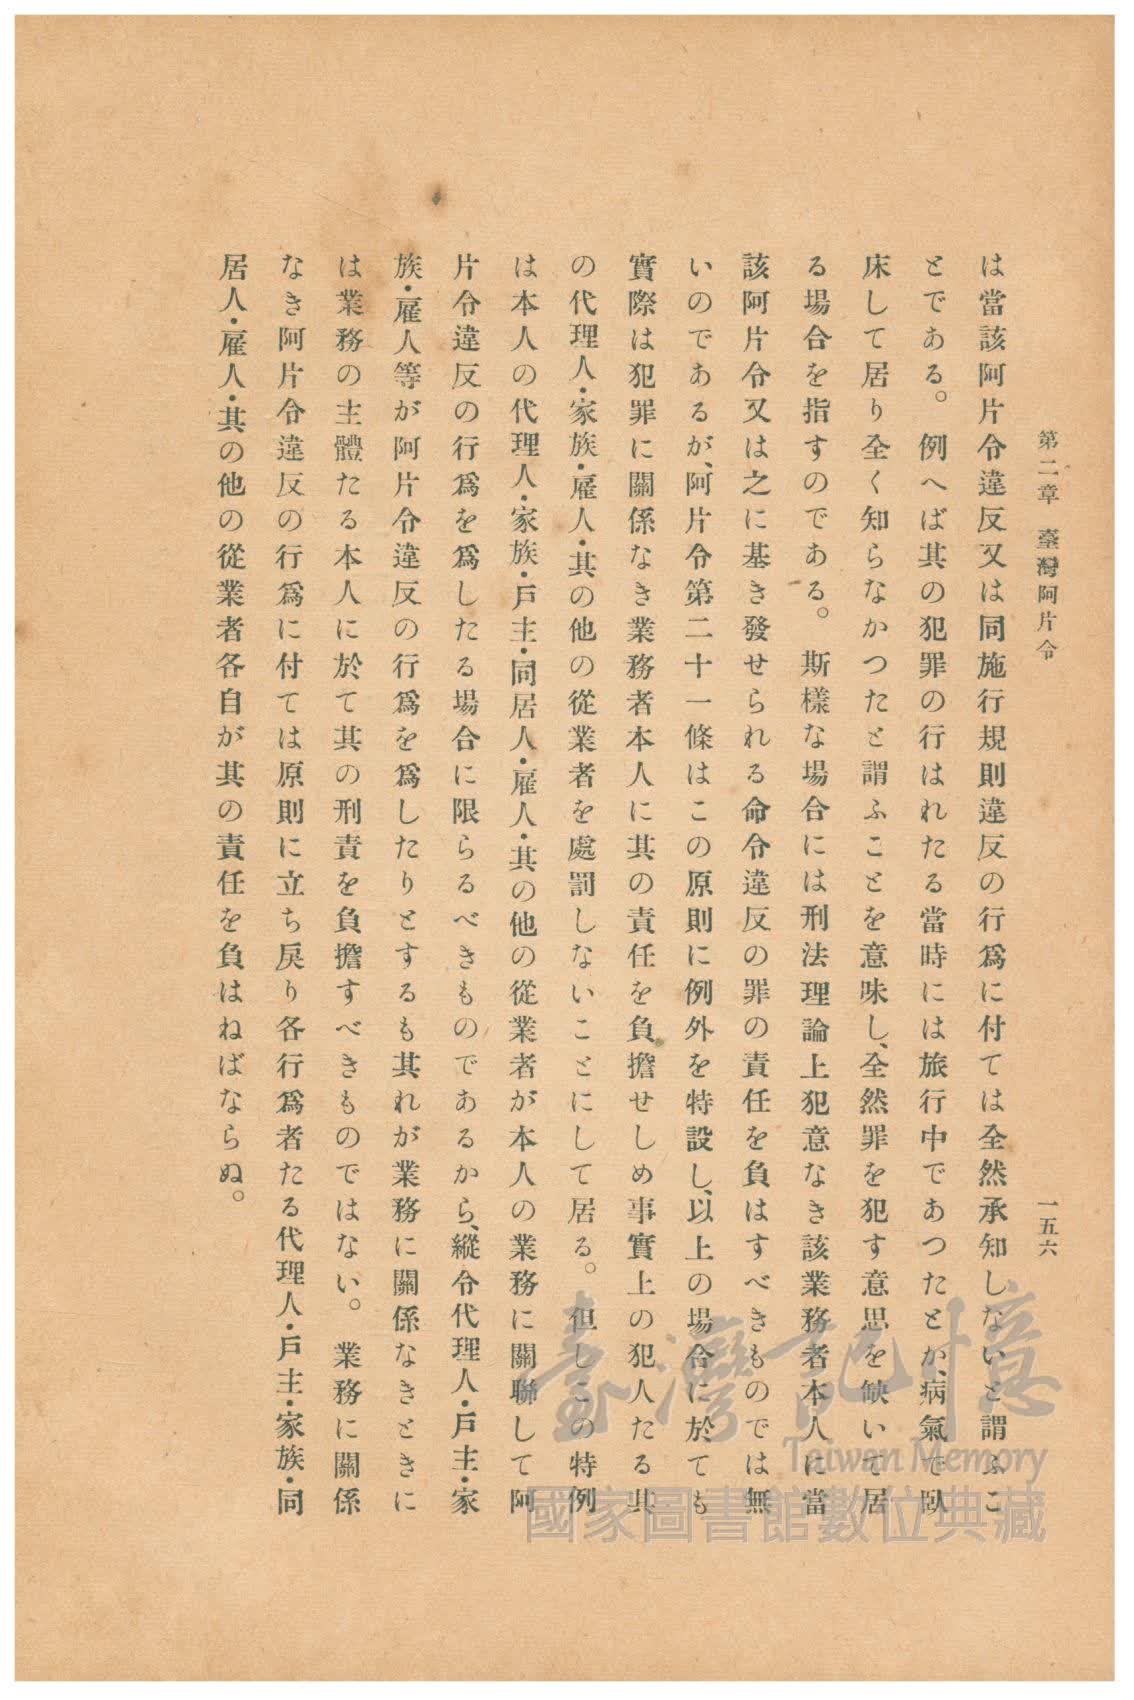 第二章　臺灣阿片令　一五六
は當該阿片令違反又は同施行規則違反の行爲に付ては全然承知しないと謂ふこ
とである。例へば其の犯罪の行はれたる當時には旅行中であつたとか、病氣で臥
床して居り全く知らなかつたと謂ふことを意味し、全然罪を犯す意思を缺いて居
る場合を指すのである。斯樣な場合には刑法理論上犯意なき該業務者本人に當
該阿片令又は之に基き發せられる命令違反の罪の責任を負はすべきものでは無
いのであるが、阿片令第二十一條はこの原則に例外を特設し、以上の場合に於ても
實際は犯罪に關係なき業務者本人に其の責任を負擔せしめ事實上の犯人たる其
の代理人・家族・雇人・其の他の從業者を處罰しないことにして居る。但しこの特例
は本人の代理人・家族・戶主・同居人・雇人・其の他の從業者が本人の業務に關聯して阿
片令違反の行爲を爲したる場合に限らるべきものであるから、縱令代理人・戶主・家
族・雇人等が阿片令違反の行爲を爲したりとするも其れが業務に關係なきときに
は業務の主體たる本人に於て其の刑責を負擔すべきものではない。業務に關係
なき阿片令違反の行爲に付ては原則に立ち戾り各行爲者たる代理人・戶主・家族・同
居人・雇人・其の他の從業者各自が其の責任を負はねばならぬ。
臺灣記憶
Taiwan Memory
國家圖書館數位典藏